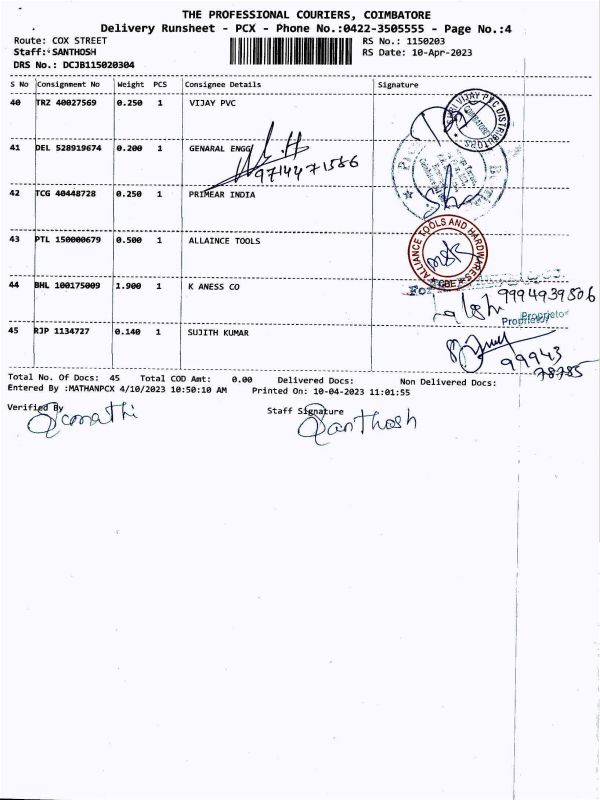 THE PROFESSIONAL COURIERS, COIMBATORE
Delivery Runsheet - PCX - Phone No.:0422-3505555 - Page No.:4
Route: COX STREET RS No.: 1150203
Staff: SANTHOSH RS Date: 10-Apr-2023
DRS No.: DCJB115020304
S No Consignment No Weight PCS Consignee Details Signature
40 TRZ 40027569 0.250 1 VIJAY PVC
SRI VIJAY PVC DISTRIBUTORS COIMBATORE
41 DEL 528919674 0.200 1 GENARAL ENGG
9714471586
42 TCG 40448728 0.250 1 PRIMEAR INDIA
43 PTL 150000679 0.500 1 ALLAINCE TOOLS
ALLIANCE TOOLS AND HARDWARES CBE
44 BHL 100175009 1.900 1 K ANESS CO
For
9994939506
Proprietor
Proprietor
45 RJP 1134727 0.140 1 SUJITH KUMAR
99943
78785
Total No. Of Docs: 45 Total COD Amt: 0.00 Delivered Docs: Non Delivered Docs:
Entered By :MATHANPCX 4/10/2023 10:50:10 AM Printed On: 10-04-2023 11:01:55
Verified By Staff Signature
Santhosh